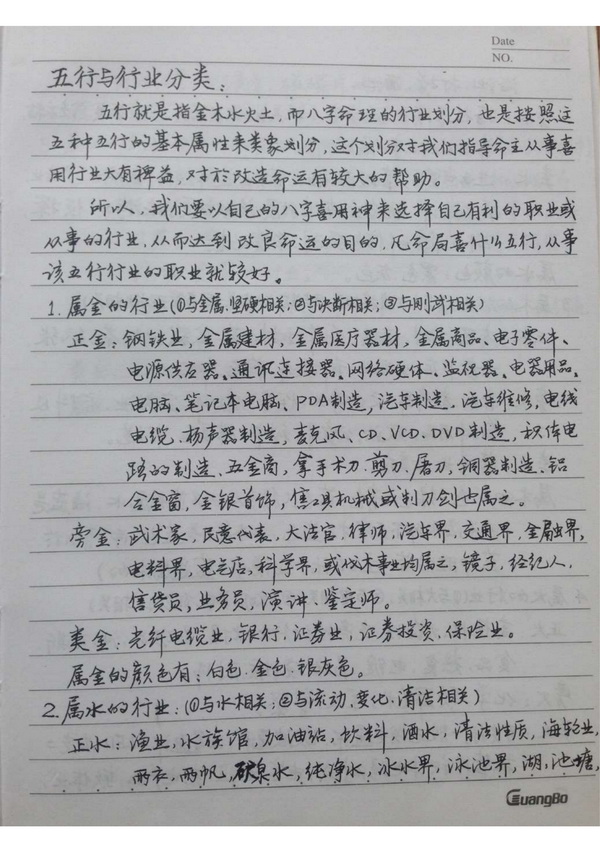 Date
NO.
五行与行业分类：
五行就是指金木水火土，而八字命理的行业划分，也是按照这
五种五行的基本属性来类象划分，这个划分对我们指导命主从事喜
用行业大有裨益，对於改造命运有较大的帮助。
所以，我们要以自己的八字喜用神来选择自己有利的职业或
从事的行业，从而达到改良命运的目的，凡命局喜什么五行，从事
该五行行业的职业就较好。
1.属金的行业（①与金属、坚硬相关；②与决断相关；③与刚武相关）
正金：钢铁业，金属建材，金属医疗器材，金属商品、电子零件、
电源供应器、通讯连接器、网络硬体、监视器、电器用品、
电脑、笔记本电脑、PDA制造，汽车制造，汽车维修，电线
电缆、扬声器制造，麦克风、CD、VCD、DVD制造，积体电
路的制造、五金商，拿手术刀、剪刀、屠刀，铜器制造、铝
合金窗，金银首饰，售工具机械或制刀剑也属之。
旁金：武术家，民意代表，大法官、律师，汽车界，交通界，金融界，
电料界，电气店，科学界，或伐木事业均属之，镜子，经纪人，
售货员，业务员，演讲、鉴定师。
类金：光纤电缆业，银行，证券业，证券投资，保险业。
属金的颜色有：白色、金色、银灰色。
2.属水的行业：（①与水相关；②与流动、变化、清洁相关）
正水：渔业，水族馆，加油站，饮料，酒水，清洁性质，海轮业，
雨衣，雨帆，矿泉水，纯净水，冰水界，泳池界，湖，池塘，
GuangBo